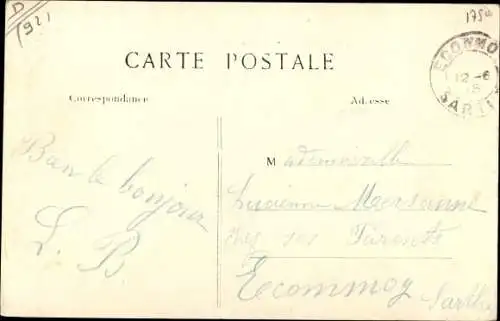 D
(921
1750
CARTE POSTALE
ECOMMOY
12-6
15
SARTHE
Correspondance
Adresse
Bien le bonjour
L. B
Mademoiselle
Lucienne Mersanne
chez ses Parents
Ecommoy
Sarthe